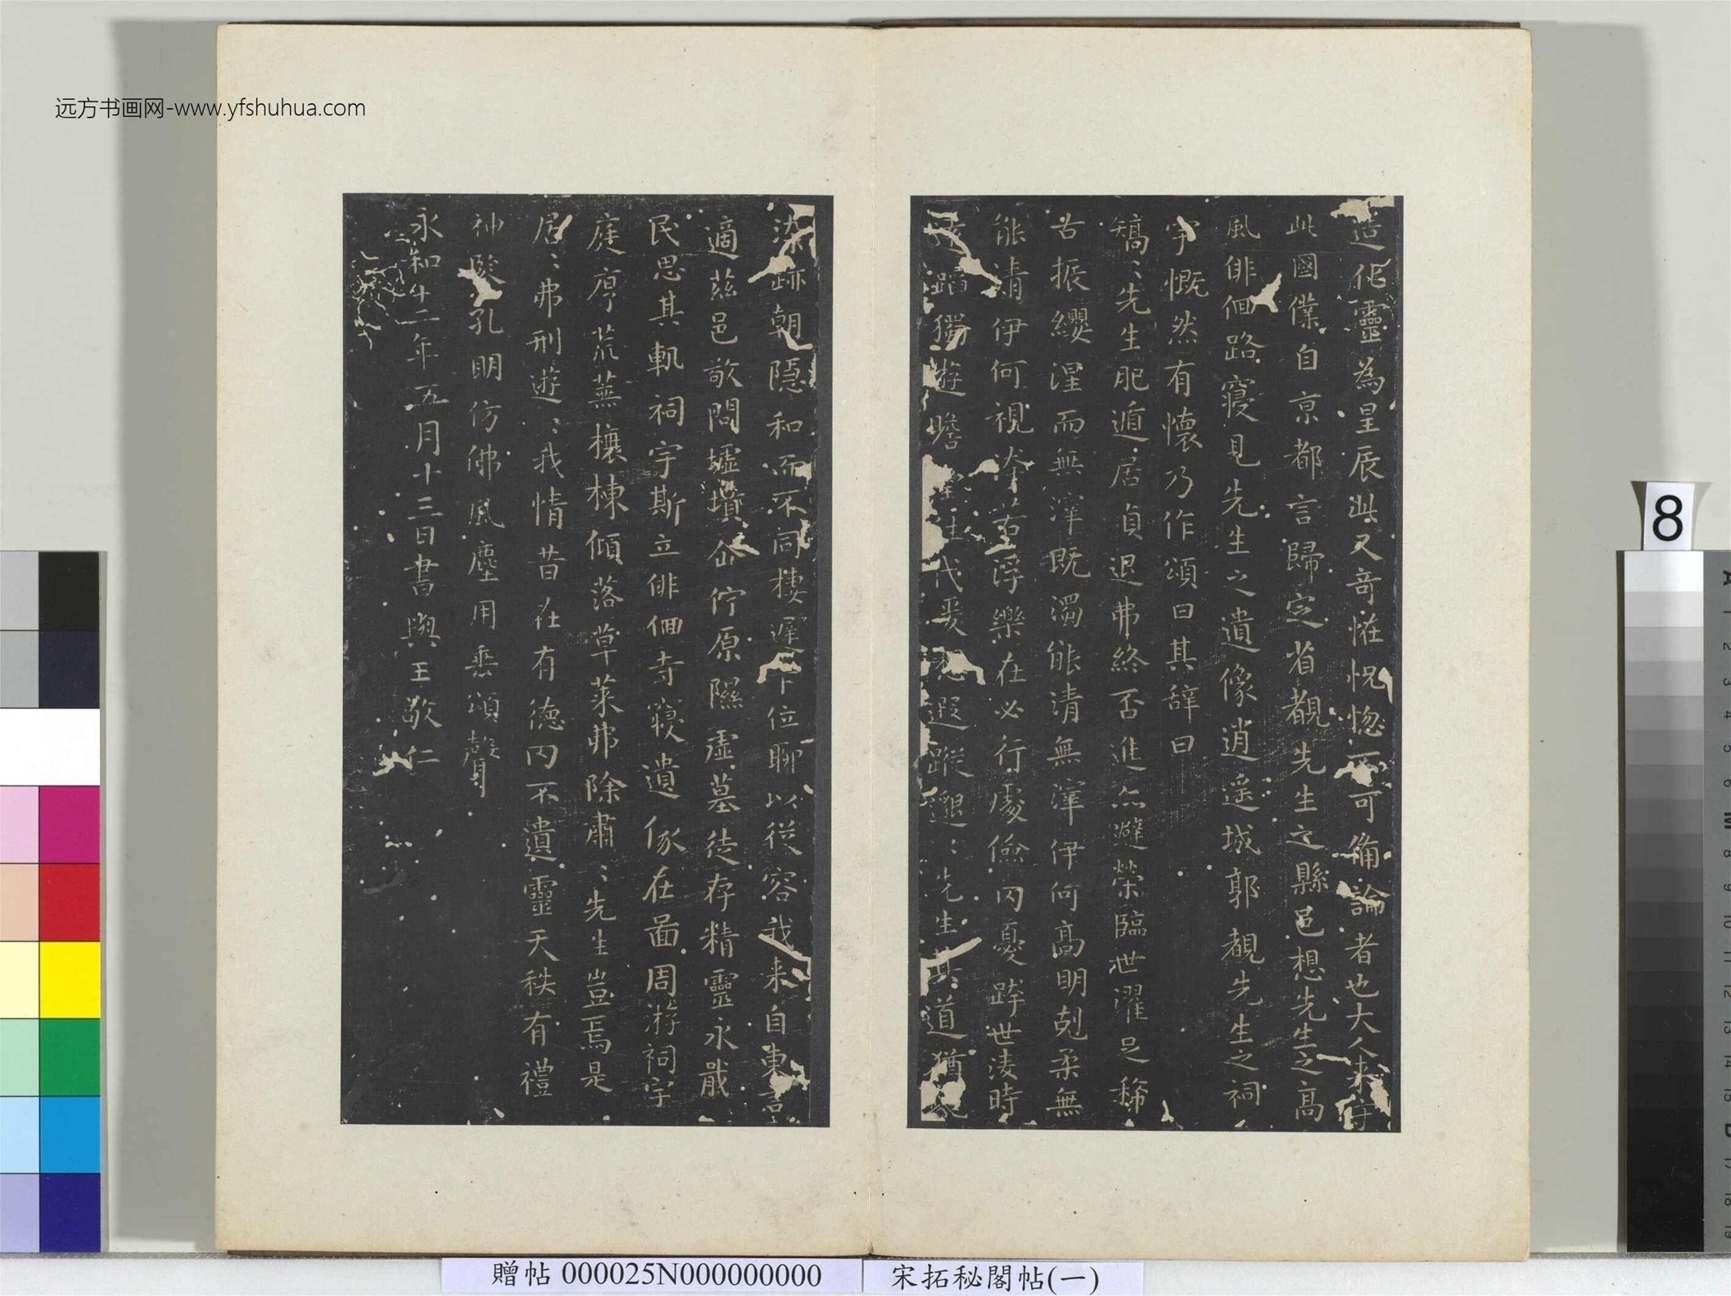 远方书画网-www.yfshuhua.com
造化靈為星辰此又奇恠恍惚不可備論者也大人来守
此國僕自京都言歸定省覩先生之縣邑想先生之高
風俳佪路寢見先生之遺像逍遥城郭覩先生之祠
宇慨然有懷乃作頌曰其辞曰
矯〻先生肥遁居貞退弗終否進亦避榮臨世濯足稀
古振纓涅而無滓既濁能清無滓伊何高明剋柔無
能清伊何視汙若浮樂在必行處儉罔憂跨世淩時
遠蹈獨遊瞻 往代爰想遐蹤邈〻先生其道猶龍
染跡朝隐和而不同棲遲下位聊以従容我来自東言
適兹邑敬問墟墳企佇原隰虛墓徒存精靈永戢
民思其軌祠宇斯立俳佪寺寢遺像在啚周游祠宇
庭序荒蕪榱棟傾落草莱弗除肅〻先生豈焉是
居〻弗刑遊〻我情昔在有德罔不遺靈天秩有禮
神監孔明仿佛風塵用垂頌聲
永和十二年五月十三日書與王敬仁
8
贈帖 000025N000000000
宋拓秘閣帖(一)